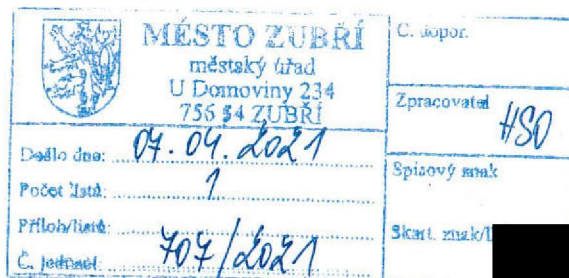 MĚSTO ZUBŘÍ
městský úřad
U Domoviny 234
756 54 ZUBŘÍ
Došlo dne: 07. 04. 2021
Počet listů: 1
Příloh/listů:
Č. jednací: 707/2021
Č. dopor.
Zpracovatel
HSO
Spisový znak
Skart. znak/